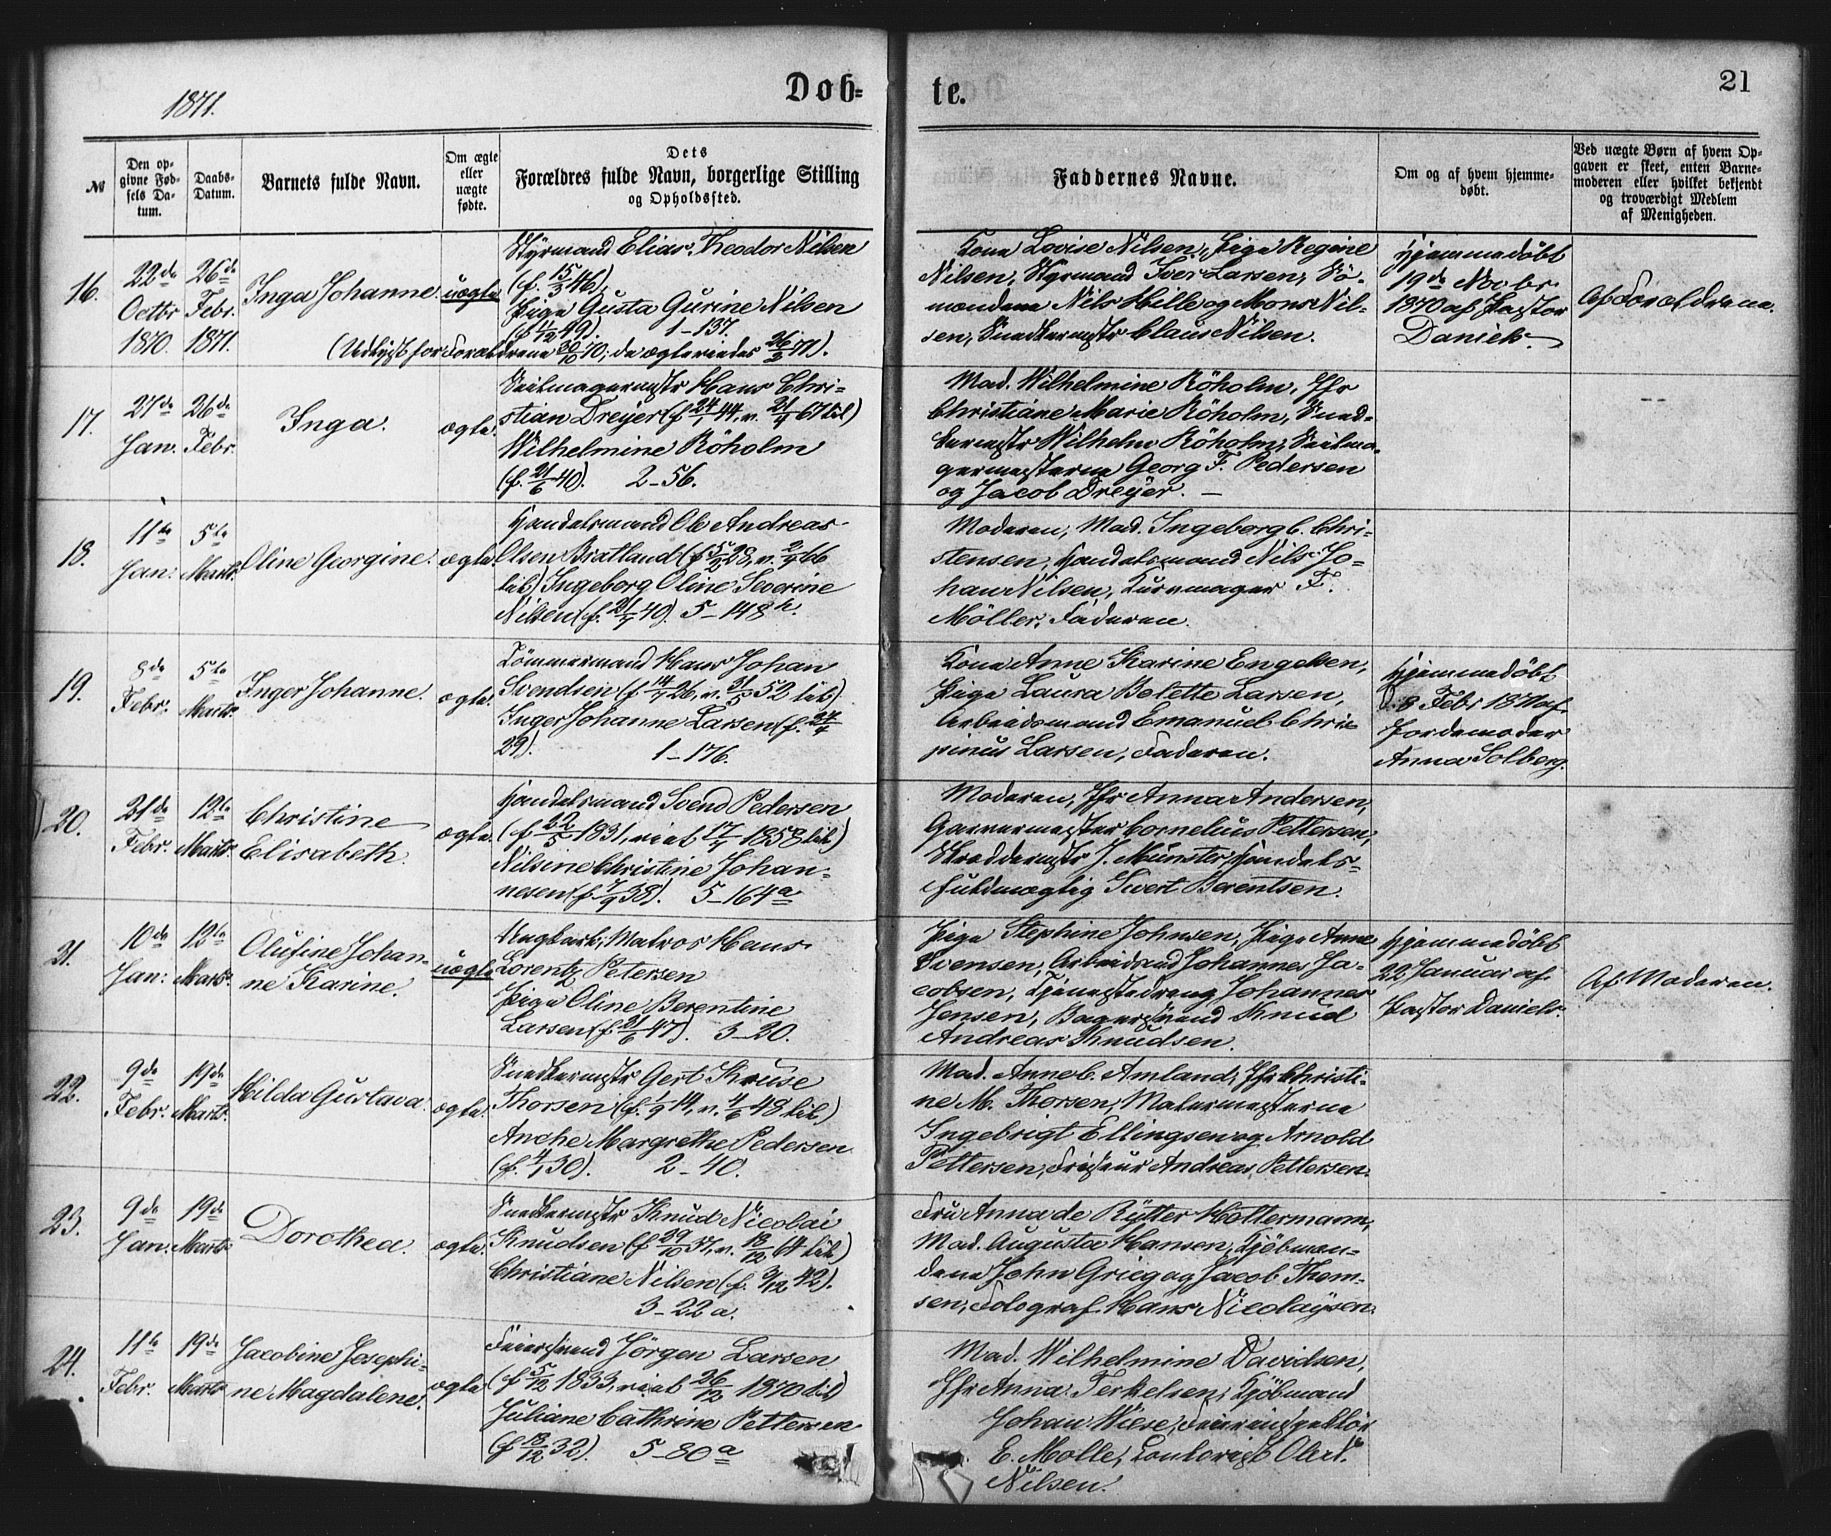 1871.
Døb-
te.
21
№
Den op-
givne Fød-
sels Da-
tum.
Daabs-
Datum.
Barnets fulde Navn.
Om ægte
eller
uægte
fødte.
Dets
Forældres fulde Navn, borgerlige Stilling
og Opholdssted.
Faddernes Navne.
Om og af hvem hjemme-
døbt.
Ved uægte Børn af hvem Op-
gaven er skeet, enten Barne-
moderen eller hvilket bekjendt
og troværdigt Medlem
af Menigheden.
16.
22de
Octbr
1870.
26de
Febr.
1871.
Inga Johanne.
uægte
Styrmand Elias Theodor Nilsen
(f. 15/3 46),
Pige Gusta Gurine Nilsen
1-137
(Udlyst for Forældrene 30/10 70; de ægteviedes 26/2 71).
Kone Lovise Nilsen, Pige Regine
Nilsen, Styrmand Iver Larsen, Sö-
mændene Nils Hille og Mons Nil-
sen, Snedkermstr Claus Nilsen.
Hjemmedøbt
19de Novbr.
1870 af Pastor
Daniels.
Af Forældrene.
17.
27de
Jan.
26de
Febr.
Inga.
ægte.
Seilmagermstr Hans Chri-
stian Dreyer (f. 24/1 44, v. 21/4 67 til)
Wilhelmine Röholm
(f. 21/6 40). 2-56.
Mad. Wilhelmine Röholm, Jfr
Christiane Marie Röholm, Sned-
kermstr Wilhelm Röholm, Seilma-
germesterne Georg F. Pedersen
og Jacob Dreyer. —
18.
11te
Jan:
5te
Marts.
Oline Georgine.
ægte
Handelsmand Ole Andreas
Olsen Bratland (f. 28, v. 66
til) Ingeborg Oline Severine
Nilsen (f. 40). 5-148 h.
Moderen, Mad. Ingeborg C. Chri-
stensen, Handelsmand Nils Jo-
han Nilsen, Kurvmager F.
Möller, Faderen.
19.
8de
Febr.
5te
Marts.
Inger Johanne.
ægte.
Tömmermand Hans Johan
Svendsen (f. 14/7 26, v. 52 til)
Inger Johanne Larsen (f. 24/4
29). 1-176.
Kone Anne Karine Engelsen,
Pige Laura Bolette Larsen,
Arbeidsmand Emanuel Chris-
pinus Larsen, Faderen.
Hjemmedøbt
D. 8 Febr 1871 af
Jordemoder
Anna Solberg.
20.
21de
Febr.
12te
Marts.
Christine
Elisabeth.
ægte.
Handelsmand Svend Pedersen
(f. 22/5 1831, viet 17/4 1858 til)
Nilsine Christine Johan-
nesen (f. 7/9 38). 5-164 a
Moderen, Jfr Anna Andersen,
Garvermester Cornelius Pettersen,
Skræddermstr J. Münster, Handels-
fuldmægtig Sivert Berentsen.
21.
10de
Jan:
12te
Marts.
Olufine Johan-
ne Karine.
uægte
Ungkarl, Matros Hans
Lorentz Petersen
Pige Oline Berentine
Larsen (f. 21/6 47). 3-30.
Pige Stephine Johnsen, Pige Anne
Svensen, Arbeidsmd Johannes Ja-
cobsen, Tjenestedreng Johannes
Jensen, Bagersvend Knud
Andreas Knudsen.
Hjemmedøbt
22 Januar af
Pastor Daniels.
Af Moderen.
22.
9de
Febr.
19de
Marts.
Hilda Gustava.
ægte.
Snedkermstr Gert Kruse
Thorsen (f. 1/9 14, v. 4/6 48 til)
Anche Margrethe Pedersen
(f. 4/1 30). 2-40.
Mad. Anne C. Amland, Jfr Christi-
ne M. Thorsen, Malermesterne
Ingebrigt Ellingsen og Arnold
Pettersen, Friseur Andreas Pettersen.
23.
9de
Jan.
19de
Marts
Dorothea.
ægte.
Snedkermstr Knud Nicolai
Knudsen (f. 29/10 37, v. 18/12 64 til)
Christiane Nilsen (f. 9/12 42).
3-22 a.
Fru Anna de Rytter Holtermann,
Mad. Augusta Hansen, Kjöbmæn-
dene John Grieg og Jacob Thom-
sen, Fotograf Hans Nicolaysen.
24.
11te
Febr.
19de
Marts
Jacobine Josephi-
ne Magdalene.
ægte
Feiersvend Jörgen Larsen
(f. 5/12 1833, viet 26/12 1870 til)
Juliane Cathrine Pettersen
(f. 18/12 32). 5-80 a
Mad. Wilhelmine Davidsen,
Jfr Anna Terkelsen, Kjöbmand
Johan Wiese, Feierinspektör
E. Molle, Contorist Olert
Nilsen.